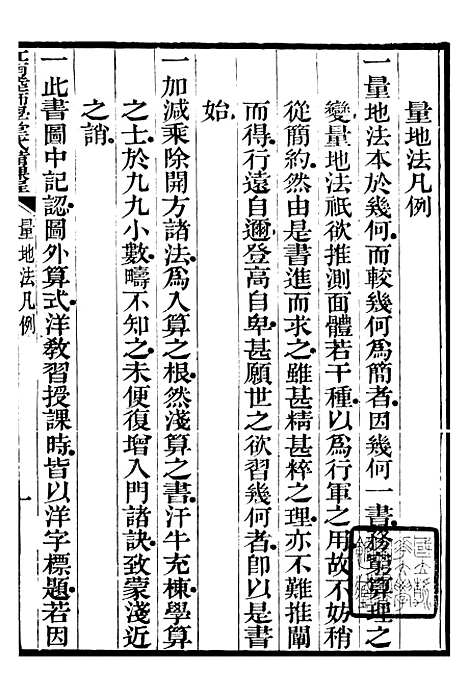 量地法凡例
一量地法本於幾何而較幾何為簡者因幾何一書務窮算理之
變量地法祇欲推測面體若干種以為行軍之用故不妨稍
從簡約然由是書進而求之雖甚精甚粹之理亦不難推闡
而得行遠自邇登高自卑甚願世之欲習幾何者即以是書
始
一加減乘除開方諸法為入算之根然淺算之書汗牛充棟學算
之士於九九小數疇不知之未便復增入門諸訣致蒙淺近
之誚
一此書圖中記認圖外算式洋教習授課時皆以洋字標題若因
量地法凡例
一